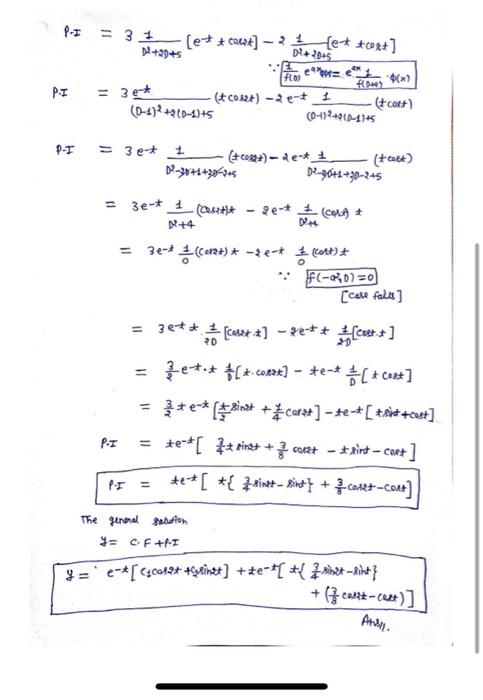 P.I = 3 1/(D²+2D+5) [e^-t t cos2t] - 2 1/(D²+2D+5) [e^-t t cost]
∵ 1/f(D) e^ax = e^ax 1/f(D+a) · φ(x)
P.I = 3 e^-t/((D-1)²+2(D-1)+5) (t cos2t) - 2e^-t 1/((D-1)²+2(D-1)+5) (t cost)
P.I = 3e^-t 1/(D²-2D+1+2D-2+5) (t cos2t) - 2e^-t 1/(D²-2D+1+2D-2+5) (t cost)
= 3e^-t 1/(D²+4) (cos2t)t - 2e^-t 1/(D²+4) (cost) t
= 3e^-t 1/0 (cos2t) t - 2e^-t 1/0 (cost) t
∵ f(-a²,D) = 0
[case fails]
= 3e^-t t 1/2D [cos2t.t] - 2e^-t t 1/2D [cost.t]
= 3/2 e^-t . t 1/D [t.cos2t] - te^-t 1/D [t cost]
= 3/2 te^-t [t/2 sin2t + 1/4 cos2t] - te^-t [t sint + cost]
P.I = te^-t [3/4 t sin2t + 3/8 cos2t - t sint - cost]
P.I = te^-t [t{3/4 sin2t - sint} + 3/8 cos2t - cost]
The general solution
y = C.F + P.I
y = e^-t [c₁cos2t + c₂sin2t] + te^-t [t{3/4 sin2t - sint}
+ (3/8 cos2t - cost)]
Ans//.